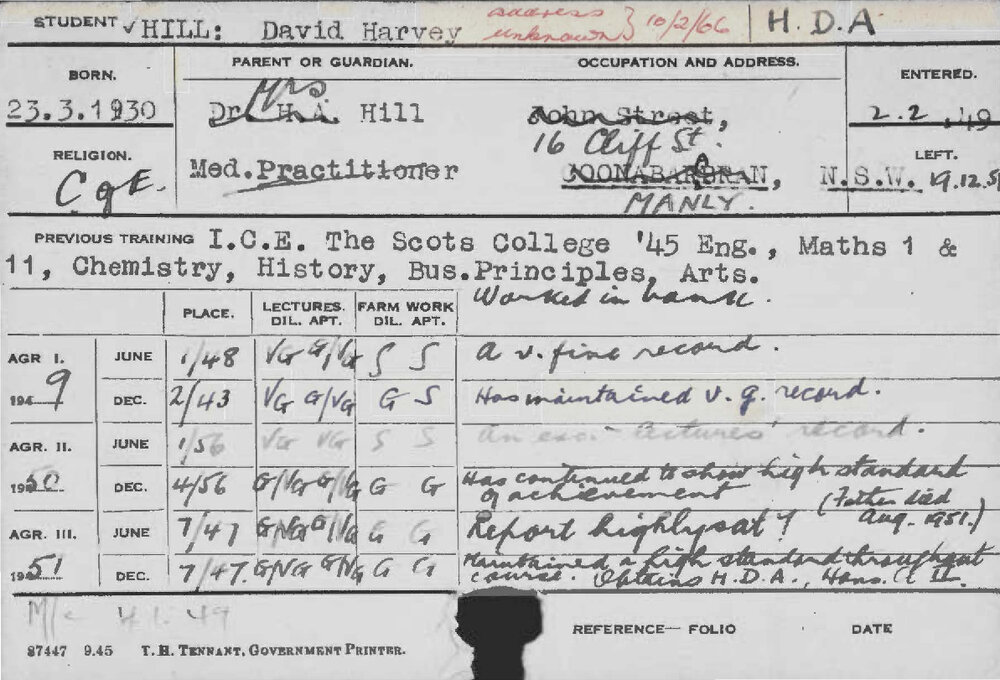 STUDENT ✓HILL: David Harvey address unknown} 10/2/66 H.D.A
BORN. PARENT OR GUARDIAN. OCCUPATION AND ADDRESS. ENTERED.
23.3.1930 Dr. H.A. Hill Mrs John Street, 2.2.49
16 Cliff St.
RELIGION. LEFT.
C of E. Med.Practitioner COONABARABRAN, N.S.W. 19.12.51
MANLY.
PREVIOUS TRAINING I.C.E. The Scots College '45 Eng., Maths 1 &
11, Chemistry, History, Bus.Principles, Arts.
Worked in bank.
PLACE. LECTURES. DIL. APT. FARM WORK DIL. APT.
AGR I. JUNE 1/48 VG G/VG S S A v. fine record.
1949 DEC. 2/43 VG G/VG G S Has maintained v. g. record.
AGR. II. JUNE 1/56 VG VG S S An exc. lectures' record.
1950 DEC. 4/56 G/VG G/VG G G Has continued to show high standard
of achievement (Father died
Aug. 1951.)
AGR. III. JUNE 7/47 G/VG G/VG G G Report highly sat?
1951 DEC. 7/47. G/VG G/VG G G Maintained a high standard throughout
course. Obtains H.D.A., Hons. Cl II.
M/c 4.1.49
REFERENCE— FOLIO DATE
87447 9.45 T. H. TENNANT, GOVERNMENT PRINTER.